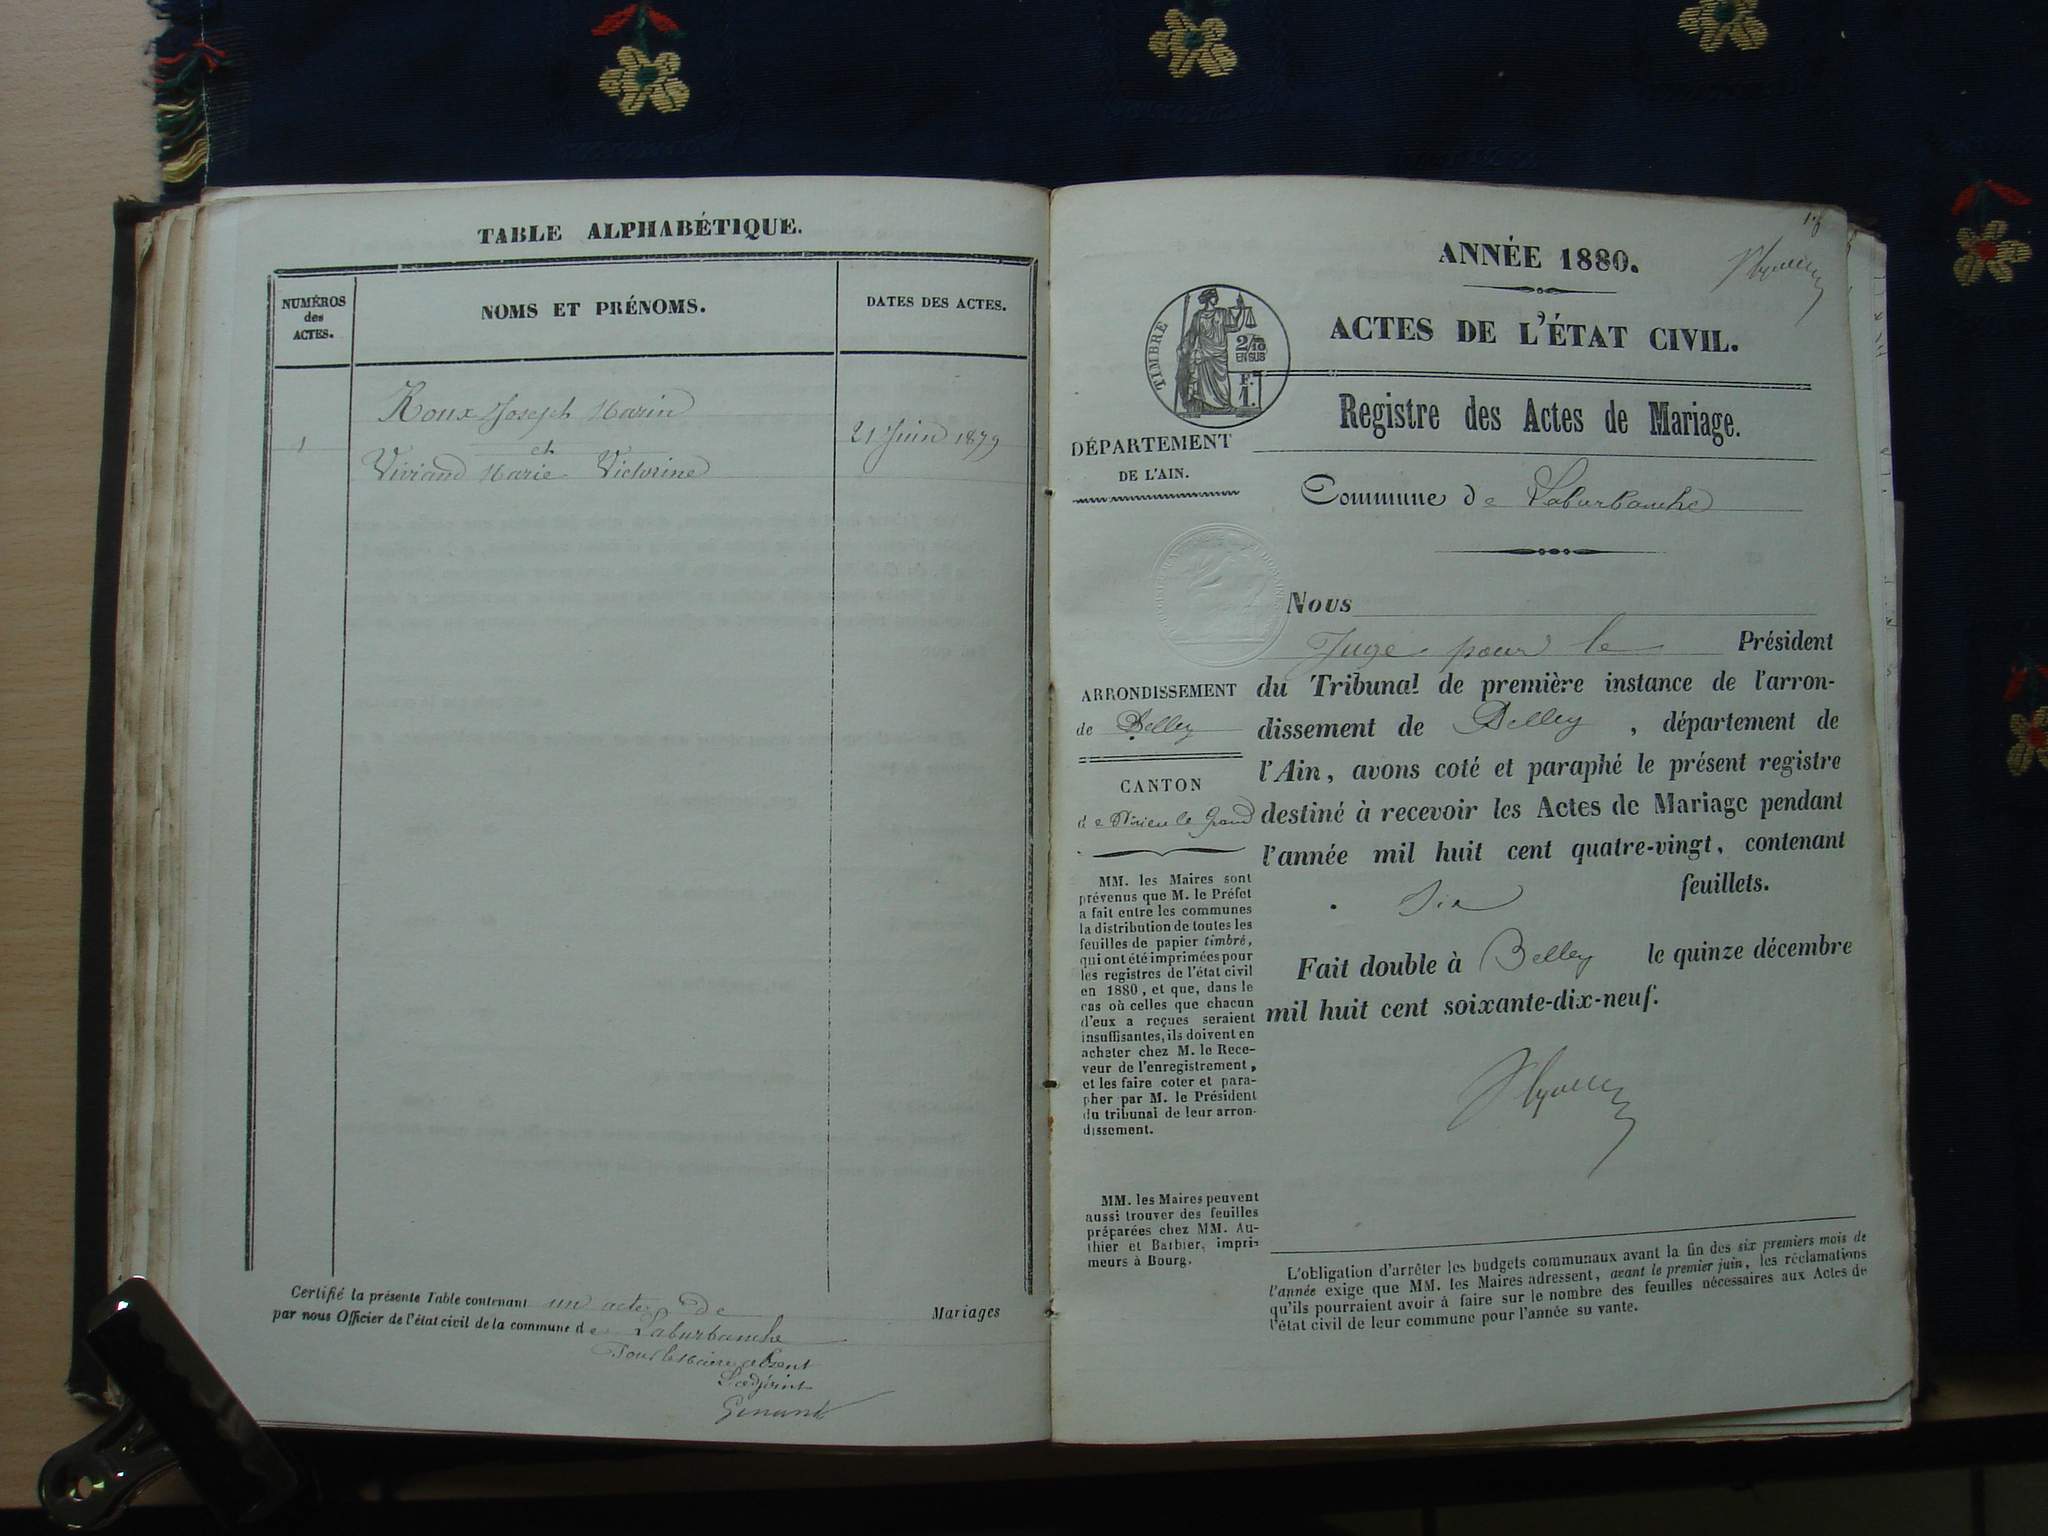 TABLE ALPHABÉTIQUE.
NUMÉROS
des
ACTES.
NOMS ET PRÉNOMS.
DATES DES ACTES.
Roux Joseph Marin
1
et
21 Juin 1879
Viviand Marie Victorine
Certifié la présente Table contenant un acte de Mariages
par nous Officier de l'état civil de la commune de Laburbanche
Pour le Maire absent
L'adjoint
ANNÉE 1880.
ACTES DE L'ÉTAT CIVIL.
TIMBRE
2/10
EN SUS
F.
1.
Registre des Actes de Mariage.
DÉPARTEMENT
DE L'AIN.
Commune de Laburbanche
Nous
Juge pour le Président
du Tribunal de première instance de l'arron-
dissement de Belley, département de
l'Ain, avons coté et paraphé le présent registre
destiné à recevoir les Actes de Mariage pendant
l'année mil huit cent quatre-vingt, contenant
Six feuillets.
Fait double à Belley le quinze décembre
mil huit cent soixante-dix-neuf.
ARRONDISSEMENT
de Belley
CANTON
de Virieu le Grand
MM. les Maires sont
prévenus que M. le Préfet
a fait entre les communes
la distribution de toutes les
feuilles de papier timbré,
qui ont été imprimées pour
les registres de l'état civil
en 1880, et que, dans le
cas où celles que chacun
d'eux a reçues seraient
insuffisantes, ils doivent en
acheter chez M. le Rece-
veur de l'enregistrement,
et les faire coter et para-
pher par M. le Président
du tribunal de leur arron-
dissement.
MM. les Maires peuvent
aussi trouver des feuilles
préparées chez MM. Au-
thier et Barbier, impri-
meurs à Bourg.
L'obligation d'arrêter les budgets communaux avant la fin des six premiers mois de
l'année exige que MM. les Maires adressent, avant le premier juin, les réclamations
qu'ils pourraient avoir à faire sur le nombre des feuilles nécessaires aux Actes de
l'état civil de leur commune pour l'année su vante.